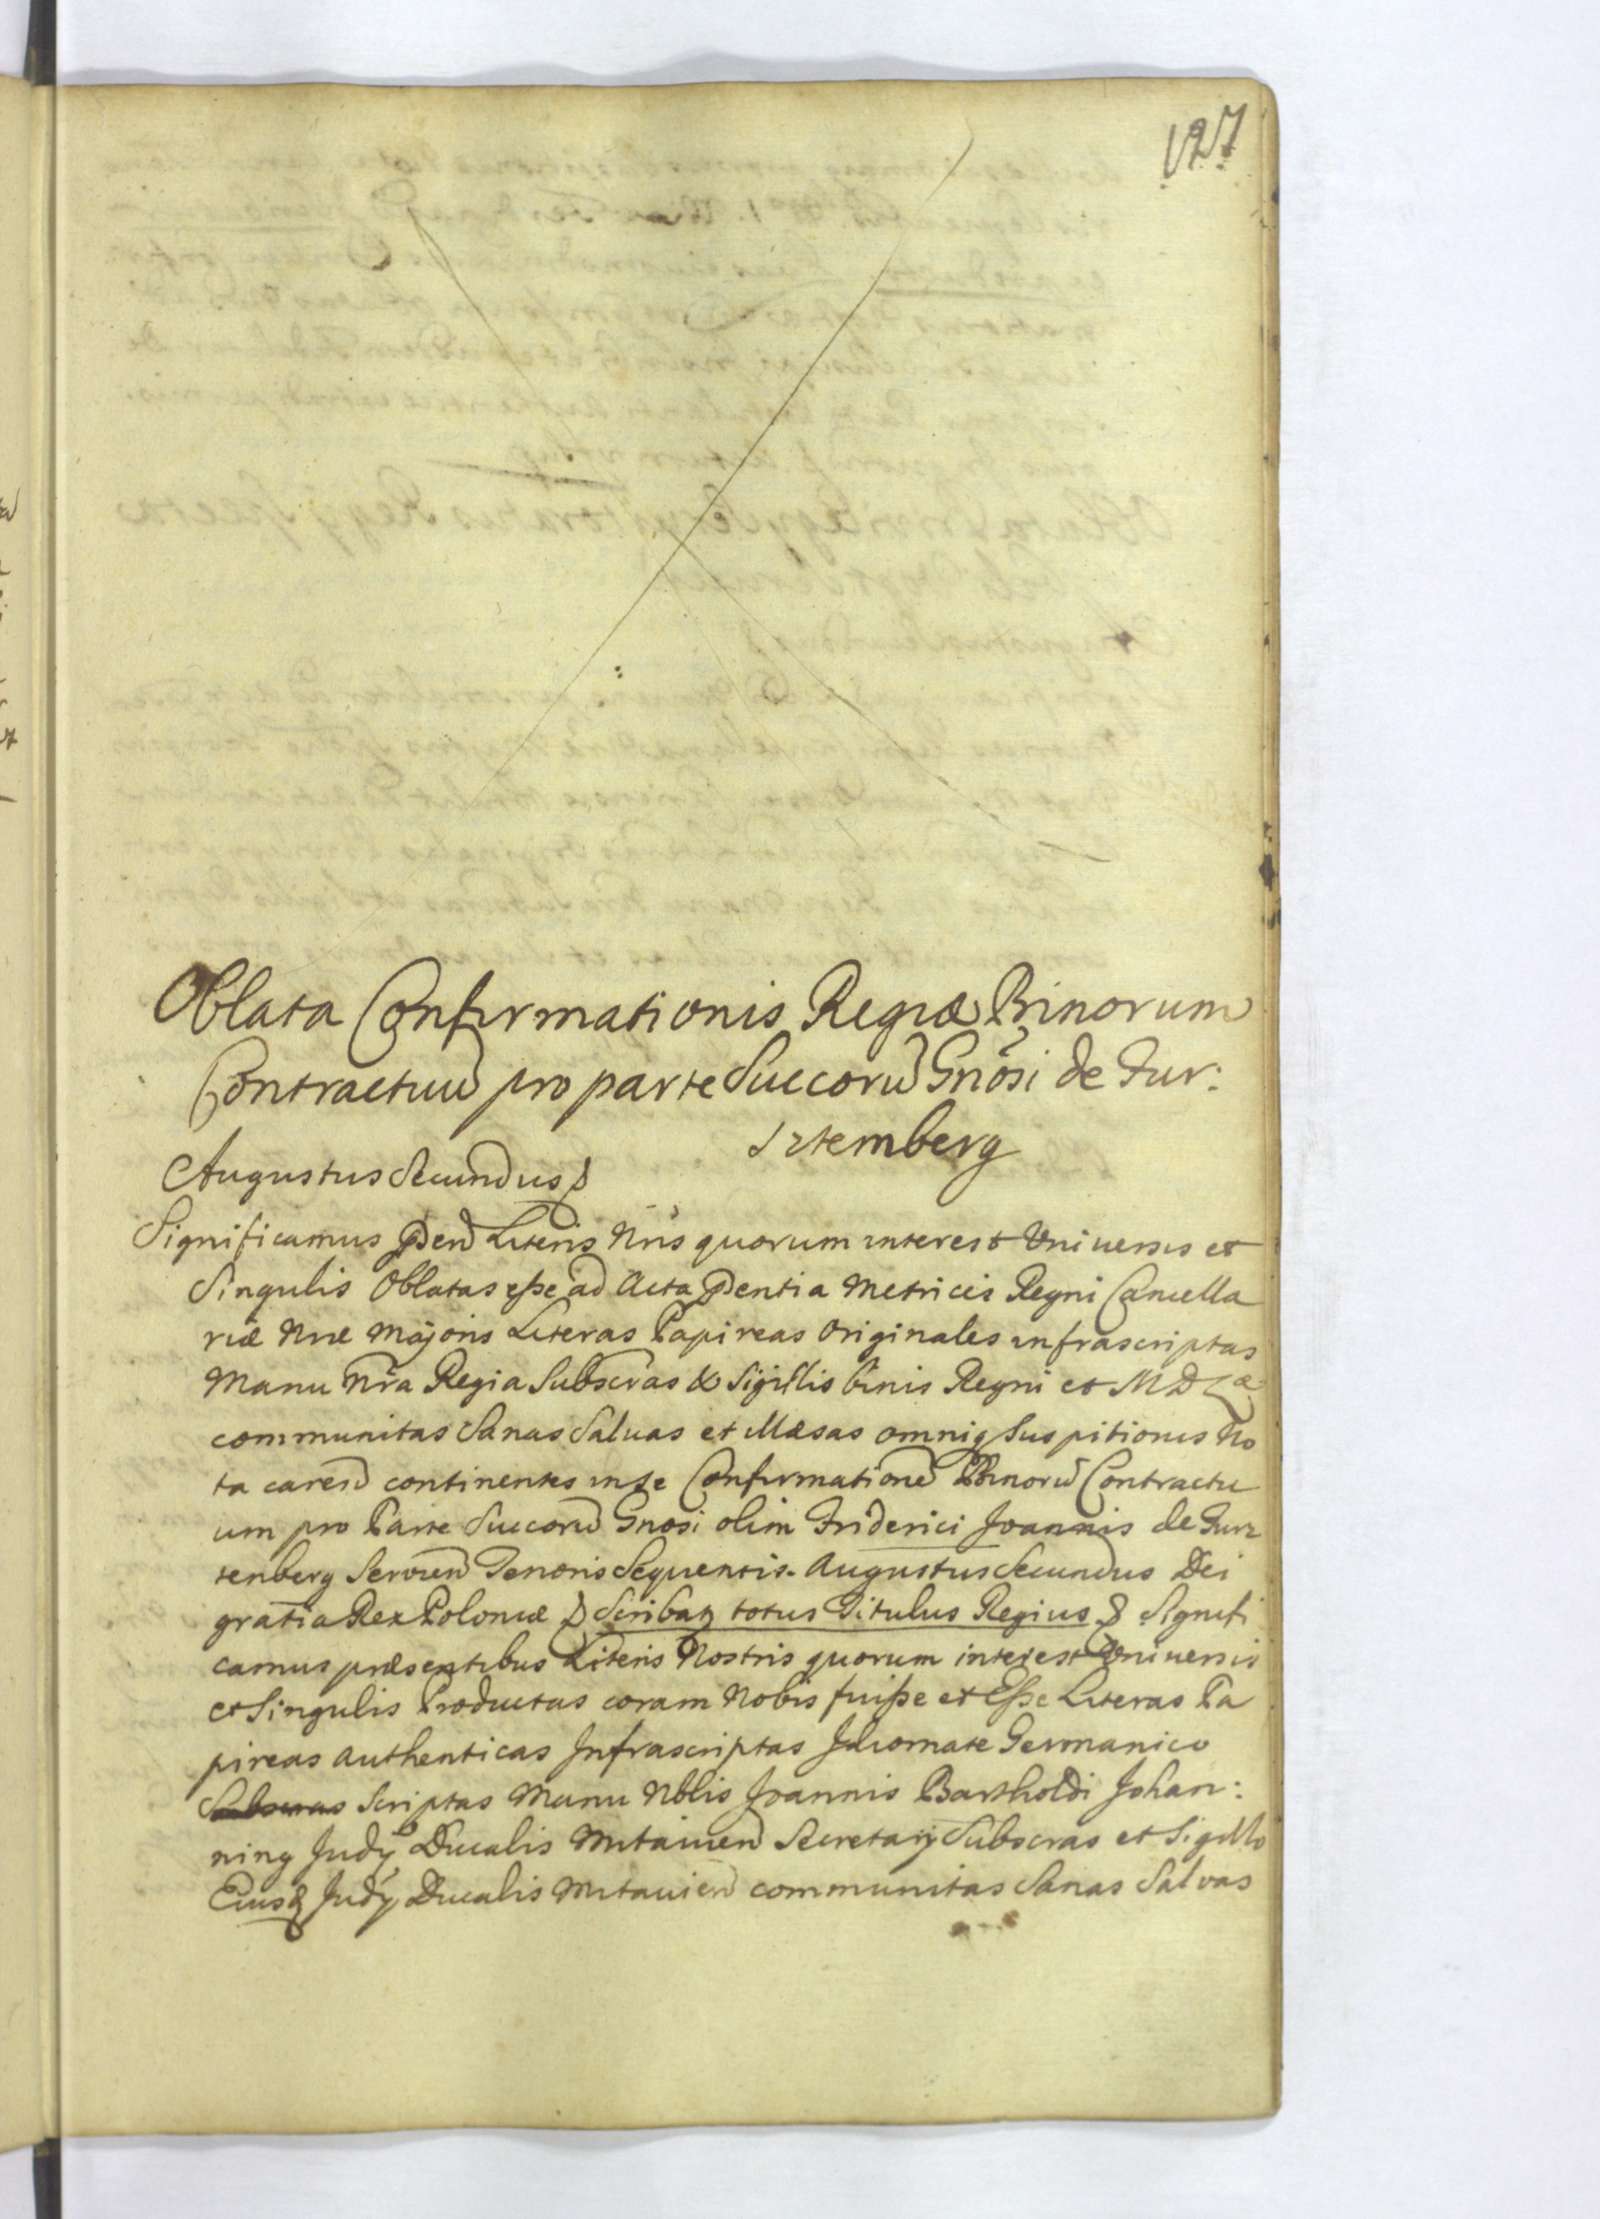 127
Oblata Confirmationis Regiæ Binorum
Contractuu pro parte Succoru Gnosi de Fur:
sztemberg
Augustus Secundus
Significamus pden Literis Nris quorum interest Vniversis et
Singulis Oblatas esse ad Acta pdentia Metrices Regni Cancella
riæ Nræ Majoris Literas Papireas Originales infrascriptas
Manu Nra Regia Subscras & Sigillis binis Regni et M D L
communitas Sanas Salvas et illæsas omniq suspitionis No
ta caren continentes in se Confirmatione Binoru Contractu
um pro Parte Succoru Gnosi olim Friderici Joannis de Furz
tenberg Servien Tenoris Sequentis. Augustus Secundus Dei
gratia Rex Poloniæ Scribat totus Titulus Regius Signifi
camus præsentibus Literis Nostris quorum interest Vniversis
et Singulis Productas coram Nobis fuisse et Esse Literas Pa
pireas authenticas Infrascriptas Idiomate Germanico
Scriptas Manu Nblis Joannis Bartholdi Johan:
ning Judÿ Ducalis Mitavien Secretarÿ Subscras et Sigillo
Eiusd Judÿ Ducalis Mitavien communitas Sanas Salvas